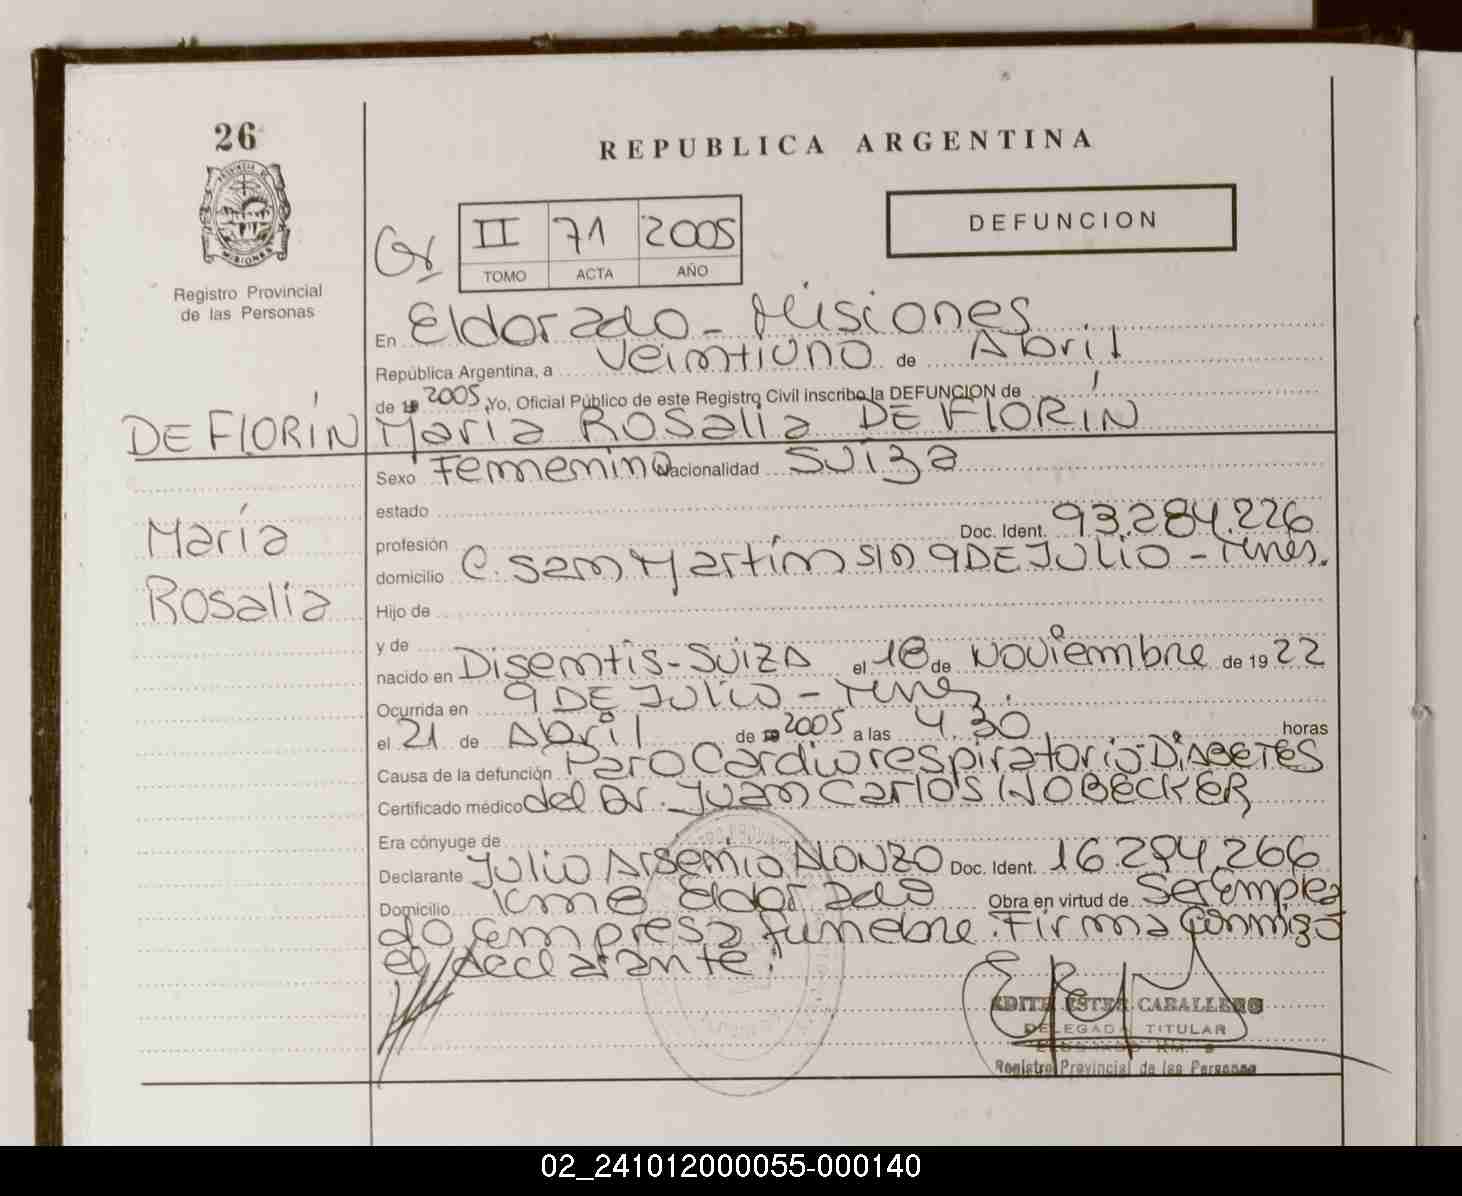 26
REPUBLICA ARGENTINA
PROVINCIA DE
MISIONES
Registro Provincial
de las Personas
II 71 2005
TOMO ACTA AÑO
DEFUNCION
En Eldorado - Misiones
República Argentina, a Veintiuno de Abril
de 19 2005, Yo, Oficial Público de este Registro Civil inscribo la DEFUNCION de
DE FLORÍN María ROSalia DE FLORÍN
Sexo Femenino Nacionalidad SUiza
estado
María
profesión Doc. Ident. 93.284.226
domicilio C. San Martín S/N 9 DE JULIO - Mnes.
Rosalia
Hijo de
y de
nacido en Disentis - SUIZA el 18 de Noviembre de 1922
Ocurrida en 9 DE JULIO - Mnes.
el 21 de Abril de 19 2005 a las 4.30 horas
Causa de la defunción Paro Cardiorespiratorio - DiABETES
Certificado médico del Dr. JUAN CARLOS NOBECKER
Era cónyuge de
Declarante JULIO Arsenio ALONZO Doc. Ident. 16.294.266
Domicilio Km 8 Eldorado Obra en virtud de Ser Emplea
do Empresa fúnebre. Firma Conmigo
el declarante.
EDITH ESTER CABALLERO
DELEGADA TITULAR
ELDORADO KM. 9
Registro Provincial de las Personas
02_241012000055-000140